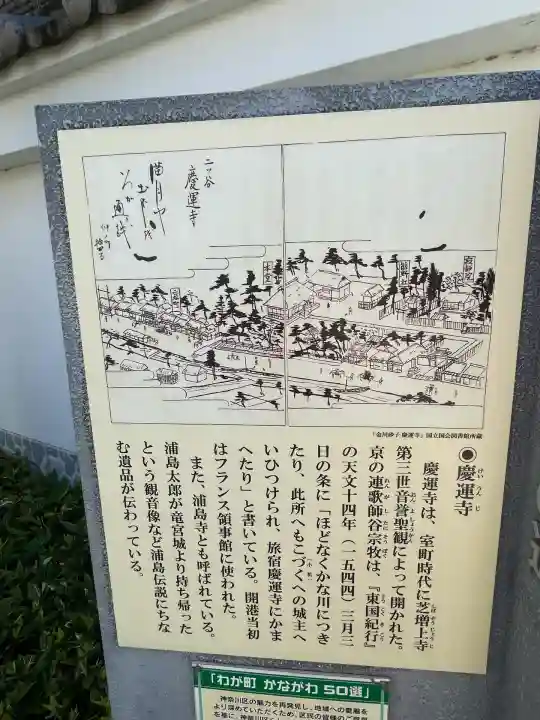 二ッ谷
慶運寺
満月や
『金川砂子 慶運寺』国立国会図書館所蔵
◉慶運寺
けいうんじ
慶運寺は、室町時代に芝増上寺
第三世音誉聖観によって開かれた。
京の連歌師谷宗牧は、『東国紀行』
の天文十四年（一五四四）三月三
日の条に「ほどなくかな川につき
たり、此所へもこづくへの城主へ
いひつけられ、旅宿慶運寺にかま
へたり」と書いている。開港当初
はフランス領事館に使われた。
また、浦島寺とも呼ばれている。
浦島太郎が竜宮城より持ち帰った
という観音像など浦島伝説にちな
む遺品が伝わっている。
「わが町 かながわ 50選」
神奈川区の魅力を再発見し、地域への愛着を
より深めていただくため、区民の皆様のご意見